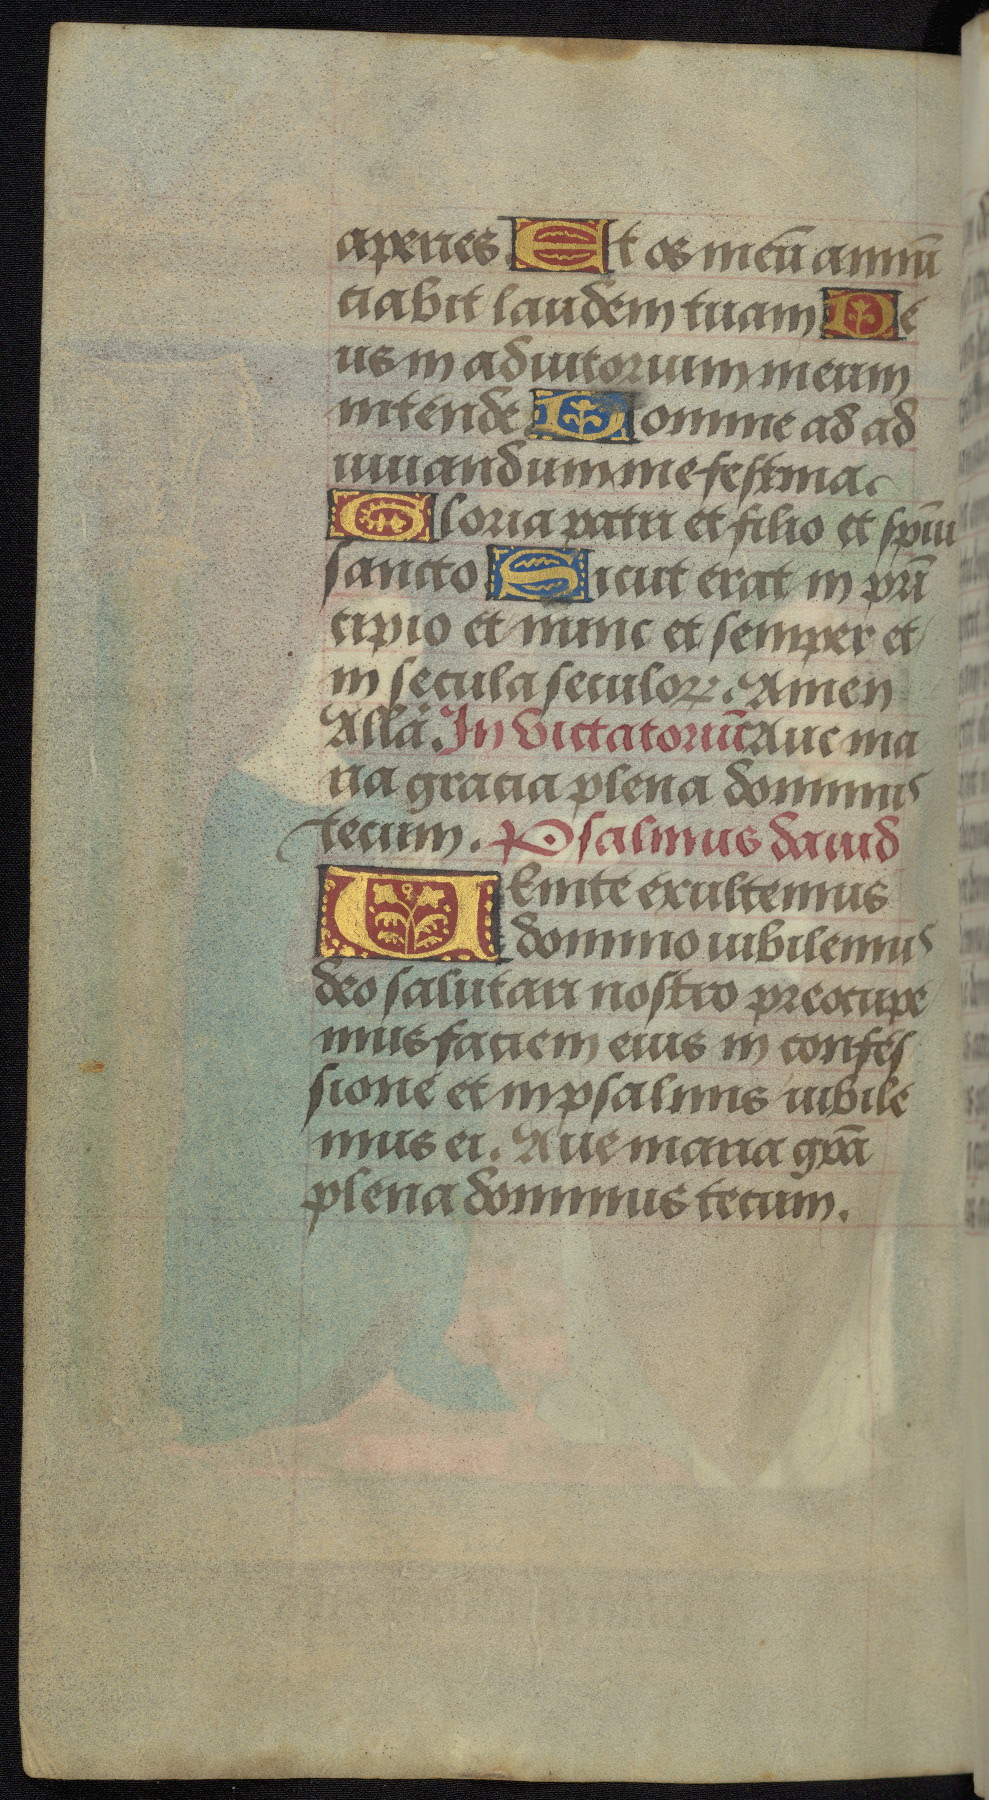 aperies Et os meū annū
ciabit laudem tuam De
us in adiutorium meum
intende Domine ad ad
iuuandum me festina.
Gloria patri et filio et sp̄iu
sancto Sicut erat in prī
cipio et nunc et semper et
in secula seculoꝝ. Amen
Allā. Invictatoriū Aue ma
ria gracia plena dominus
tecum. Psalmus dauid
Uenite exultemus
domino iubilemus
deo salutari nostro preocupe
mus faciem eius in confes
sione et in psalmis iubile
mus ei. Aue maria grā
plena dominus tecum.